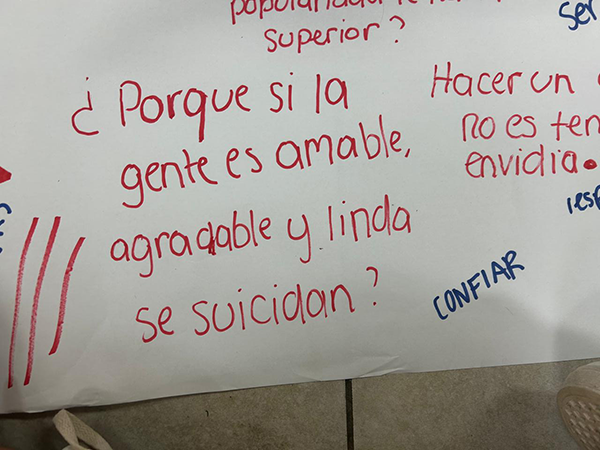 superior?
¿Porque si la
gente es amable,
agradable y linda
se suicidan?
Hacer un
no es
envidia.
CONFIAR
ser